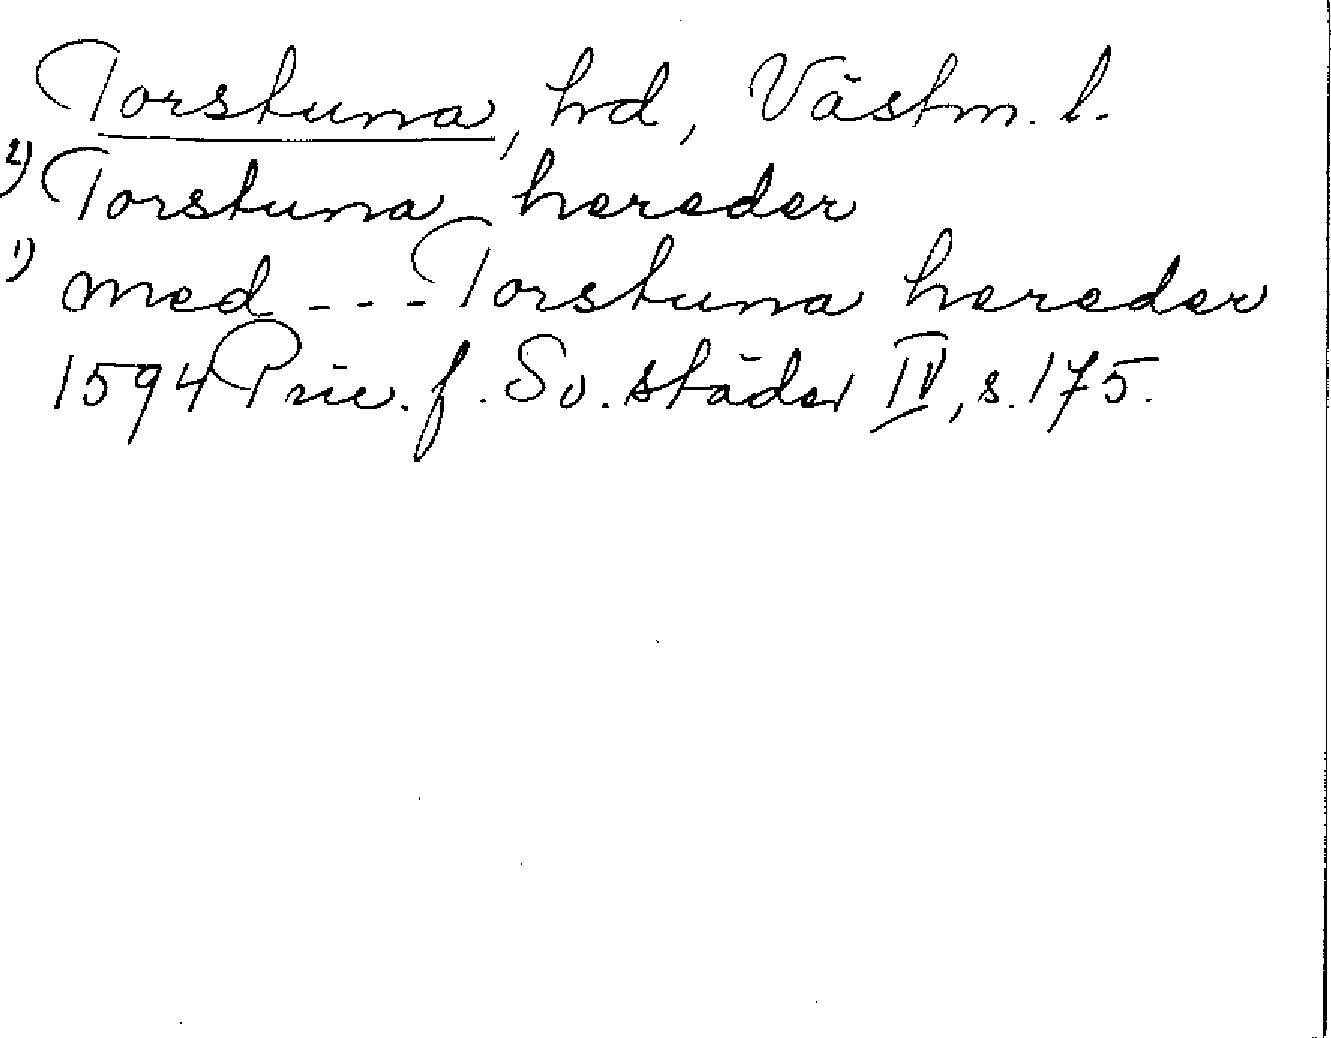 Torstuna, hd, Västm. l.
2) Torstuna hereder
1) med - - - Torstuna hereder
1594 Priv. f. Sv. städer IV, s. 175.